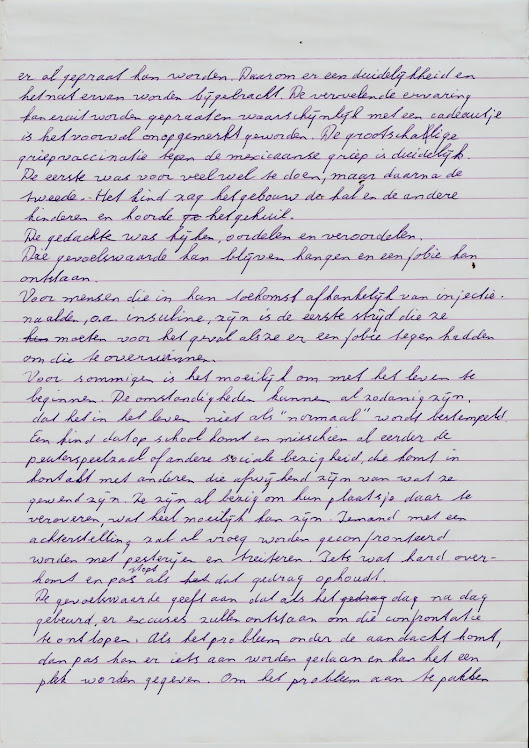 er al gepraat kan worden. Daarom er een duidelijkheid en
het nut ervan worden bijgebracht. De vervelende ervaring
kan eruit worden gepraat en waarschijnlijk met een cadeautje
is het voorval onopgemerkt geworden. De grootschallige
griepvaccinatie tegen de mexicaanse griep is duidelijk.
De eerste was voor veel wel te doen, maar daarna de
tweede. Het kind zag het gebouw de hal en de andere
kinderen en hoorde het gehuil.
De gedachte was kijken, oordelen en veroordelen.
Die gevoelswaarde kan blijven hangen en een fobie kan
ontstaan.
Voor mensen die in hun toekomst afhankelijk van injectie-
naalden, o.a. insuline, zijn is de eerste strijd die ze
moeten voor het geval als ze er een fobie tegen hadden
om die te overwinnen.
Voor sommigen is het moeilijk om met het leven te
beginnen. De omstandigheden kunnen al zodanig zijn,
dat het in het leven niet als "normaal" wordt bestempeld.
Een kind dat op school komt en misschien al eerder de
peuterspeelzaal of andere sociale bezigheid, die komt in
kontakt met anderen die afwijkend zijn van wat ze
gewend zijn. Ze zijn al bezig om hun plaatsje daar te
veroveren, wat heel moeilijk kan zijn. Iemand met een
achterstelling zal al vroeg worden geconfronteerd
worden met pesterijen en treiteren. Iets wat hard over-
komt en pas stopt als dat gedrag ophoudt.
De gevoelswaarde geeft aan dat als het gedrag dag na dag
gebeurd, er excuses zullen ontstaan om die confrontatie
te ontlopen. Als het probleem onder de aandacht komt,
dan pas kan er iets aan worden gedaan en kan het een
plek worden gegeven. Om het probleem aan te pakken